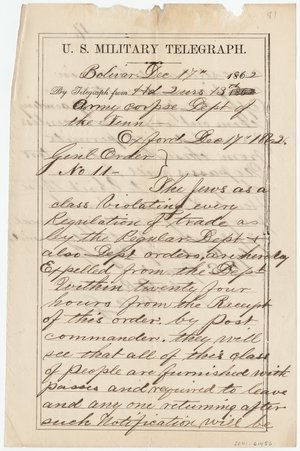 U. S. MILITARY TELEGRAPH.
Bolivar Dec 17th 1862
By Telegraph from Hd Qurs 13th
Army corpse Dept of
the Tenn
Oxford Dec 17th 1862.
Genl Order
No 11-
The Jews as a
class Violating every
Regulation of trade as
by the Dept &
also Dept orders, are hereby
Expelled from the Dept
Within twenty four
hours from the Receipt
of this order by post
commander. they will
see that all of this class
of people are furnished with
passes and required to leave
and any one returning after
such Notification will be